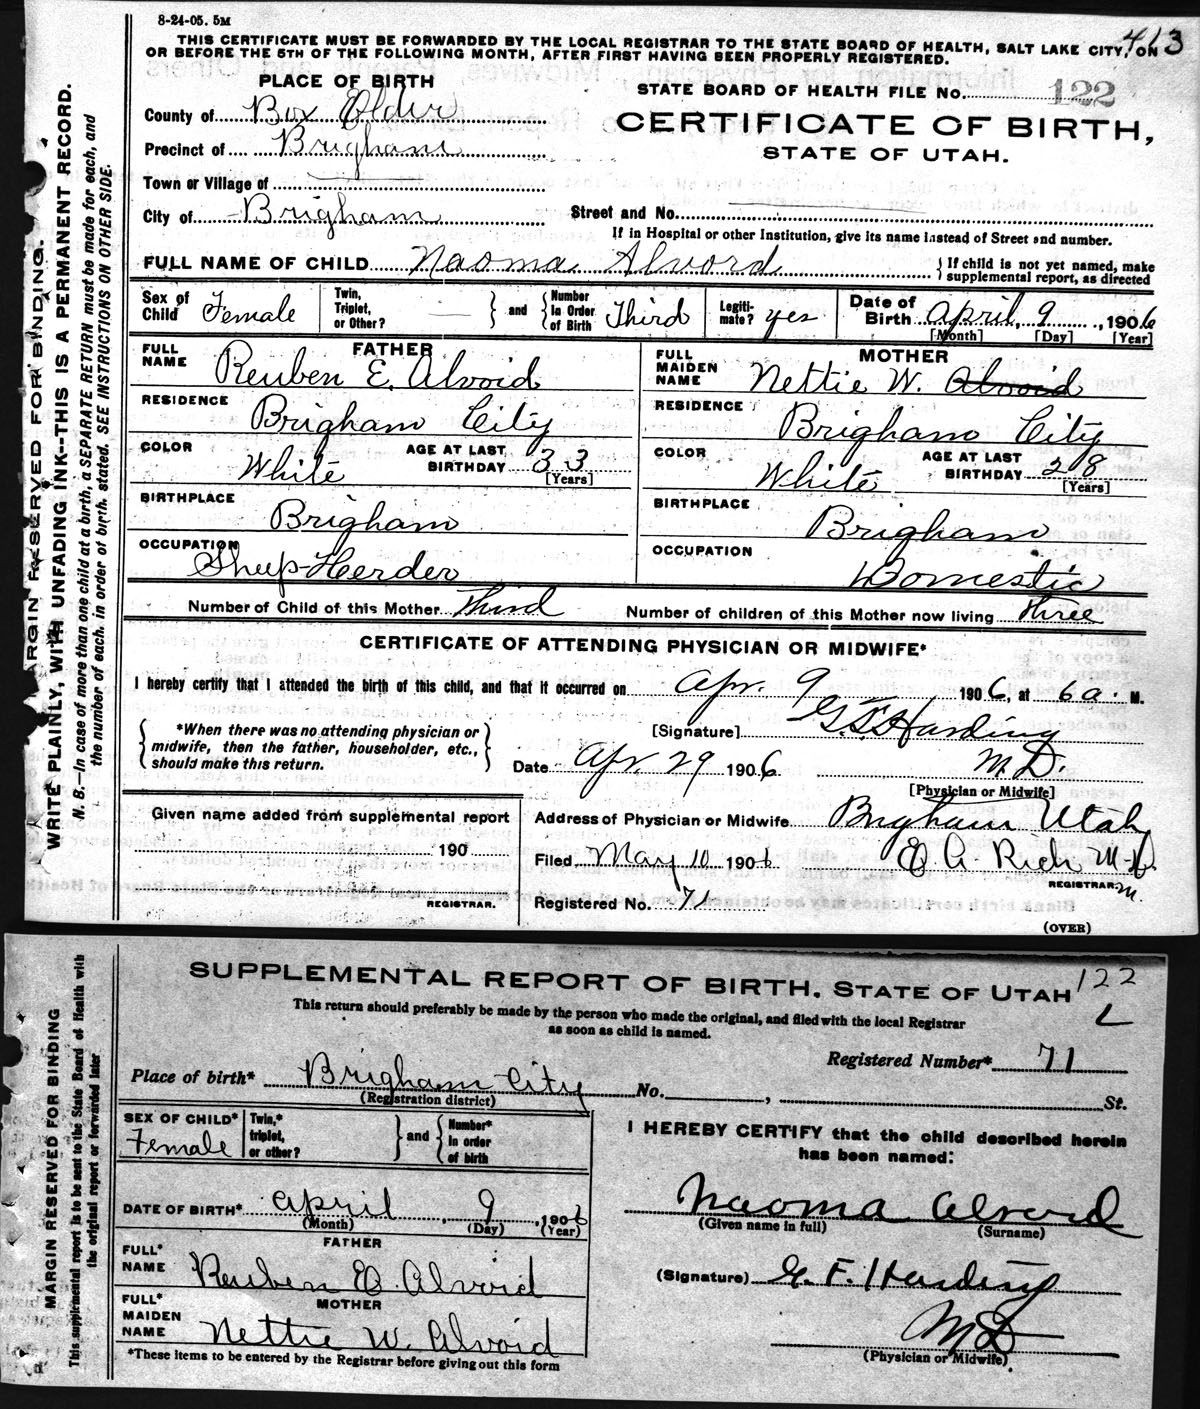 8-24-05. 5M
413
THIS CERTIFICATE MUST BE FORWARDED BY THE LOCAL REGISTRAR TO THE STATE BOARD OF HEALTH, SALT LAKE CITY, ON
OR BEFORE THE 5TH OF THE FOLLOWING MONTH, AFTER FIRST HAVING BEEN PROPERLY REGISTERED.
MARGIN RESERVED FOR BINDING.
WRITE PLAINLY, WITH UNFADING INK--THIS IS A PERMANENT RECORD.
N. B.—In case of more than one child at a birth, a SEPARATE RETURN must be made for each, and
the number of each, in order of birth, stated. SEE INSTRUCTIONS ON OTHER SIDE.
PLACE OF BIRTH
STATE BOARD OF HEALTH FILE No. 122
County of Box Elder
CERTIFICATE OF BIRTH,
Precinct of Brigham
STATE OF UTAH.
Town or Village of
City of Brigham Street and No.
If in Hospital or other Institution, give its name instead of Street and number.
FULL NAME OF CHILD Naoma Alvord { If child is not yet named, make
supplemental report, as directed
Sex of Child Female Twin, Triplet, or Other? } and { Number In Order of Birth Third Legiti- mate? yes Date of Birth April, 9, 1906
[Month] [Day] [Year]
FATHER MOTHER
FULL NAME Reuben E. Alvord FULL MAIDEN NAME Nettie W. Alvord
RESIDENCE Brigham City RESIDENCE Brigham City
COLOR White AGE AT LAST BIRTHDAY 33 [Years] COLOR White AGE AT LAST BIRTHDAY 28 [Years]
BIRTHPLACE Brigham BIRTHPLACE Brigham
OCCUPATION Sheep-Herder OCCUPATION Domestic
Number of Child of this Mother Third Number of children of this Mother now living three
CERTIFICATE OF ATTENDING PHYSICIAN OR MIDWIFE*
I hereby certify that I attended the birth of this child, and that it occurred on Apr. 9 1906, at 6 a. M.
{ *When there was no attending physician or
midwife, then the father, householder, etc.,
should make this return. }
[Signature] G. F. Harding
Date Apr. 29 1906. M.D.
[Physician or Midwife]
Given name added from supplemental report
Address of Physician or Midwife Brigham Utah
190
Filed May 10 1906 E. A. Rich M.D.
REGISTRAR. m.
REGISTRAR.
Registered No. 71
(OVER)
MARGIN RESERVED FOR BINDING
This supplemental report is to be sent to the State Board of Health with
the original report or forwarded later
SUPPLEMENTAL REPORT OF BIRTH. STATE OF UTAH 122
L
This return should preferably be made by the person who made the original, and filed with the local Registrar
as soon as child is named.
Registered Number* 71
Place of birth* Brigham City No. , St.
(Registration district)
SEX OF CHILD* Female Twin,* triplet, or other? } and { Number* in order of birth
I HEREBY CERTIFY that the child described herein
has been named:
DATE OF BIRTH* April , 9 , 1906
(Month) (Day) (Year)
Naoma Alvord
(Given name in full) (Surname)
FATHER
FULL* NAME Reuben E. Alvord
(Signature) G. F. Harding
MOTHER
FULL* MAIDEN NAME Nettie W. Alvord
MD
(Physician or Midwife)
*These items to be entered by the Registrar before giving out this form